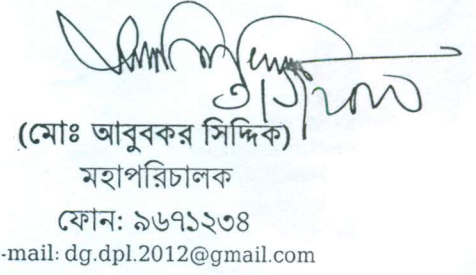 (মোঃ আবুবকর সিদ্দিক)
মহাপরিচালক
ফোন: ৯৬৭১২৩৪
-mail: dg.dpl.2012@gmail.com